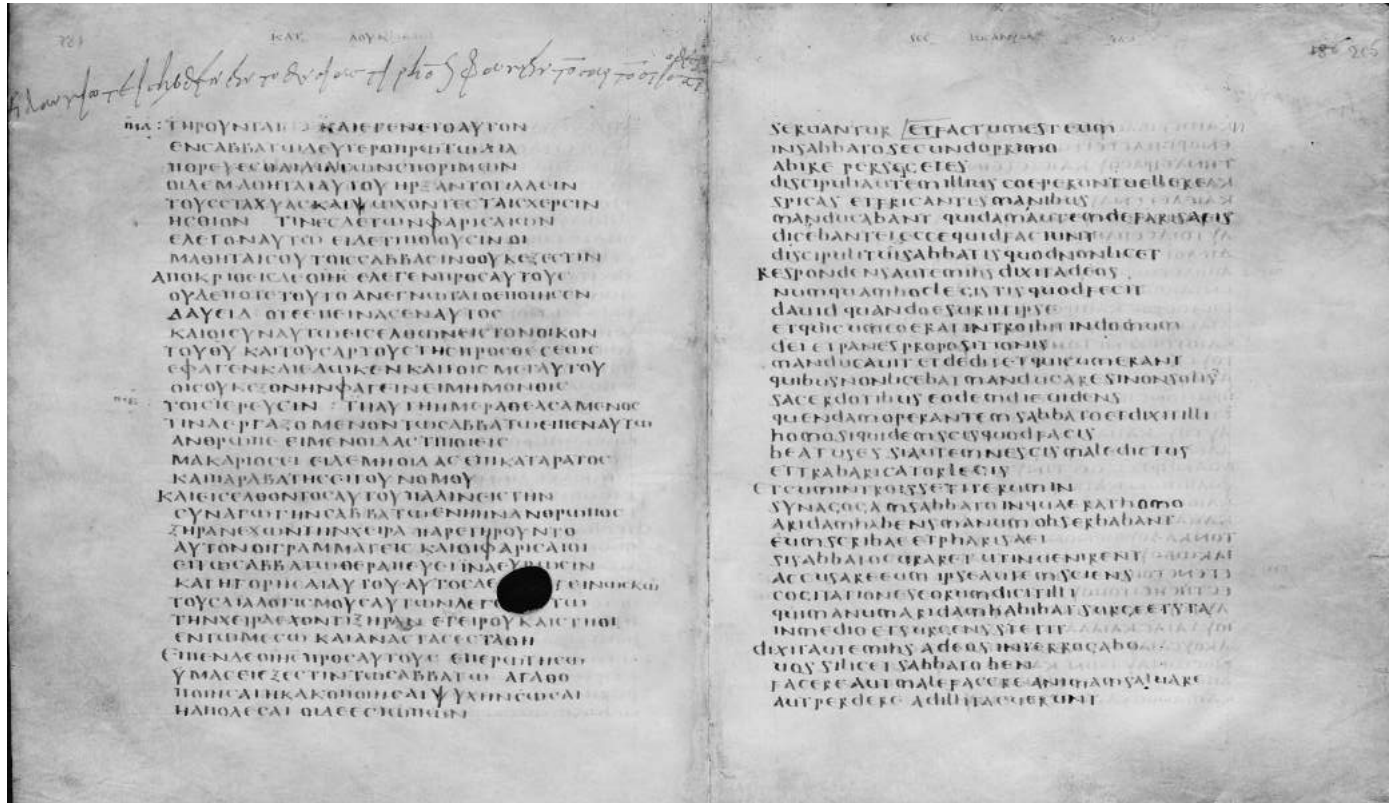 ΚΑΤ ΛΟΥΚ
ΤΗΡΟΥΝΤΑΙ ΚΑΙΕΓΕΝΕΤΟΑΥΤΟΝ
ΕΝϹΑΒΒΑΤΩΔΕΥΤΕΡΟΠΡΩΤΩΔΙΑ
ΠΟΡΕΥΕϹΘΑΙΔΙΑΤΩΝϹΠΟΡΙΜΩΝ
ΟΙΔΕΜΑΘΗΤΑΙΑΥΤΟΥ ΗΡΞΑΝΤΟΤΙΛΛΕΙΝ
ΤΟΥϹϹΤΑΧΥΑϹΚΑΙΨΩΧΟΝΤΕϹΤΑΙϹΧΕΡϹΙΝ
ΗϹΘΙΟΝ ΤΙΝΕϹΔΕΤΩΝΦΑΡΙϹΑΙΩΝ
ΕΛΕΓΟΝΑΥΤΩ ΕΙΔΕΤΙΠΟΙΟΥϹΙΝΟΙ
ΜΑΘΗΤΑΙϹΟΥΤΟΙϹϹΑΒΒΑϹΙΝΟΟΥΚΕΞΕϹΤΙΝ
ΑΠΟΚΡΙΘΕΙϹΔΕΟΙΗϹ ΕΛΕΓΕΝΠΡΟϹΑΥΤΟΥϹ
ΟΥΔΕΠΟΤΕΤΟΥΤΟ ΑΝΕΓΝΩΤΑΙΟΕΠΟΙΗϹΕΝ
ΔΑΥΕΙΔ ΟΤΕΕΠΕΙΝΑϹΕΝΑΥΤΟϹ
ΚΑΙΟΙϹΥΝΑΥΤΩΕΙϹΕΛΘΩΝΕΙϹΤΟΝΟΙΚΟΝ
ΤΟΥΘΥ ΚΑΙΤΟΥϹΑΡΤΟΥϹΤΗϹΠΡΟϹΘΕϹΕΩϹ
ΕΦΑΓΕΝΚΑΙΕΔΩΚΕΝΚΑΙΤΟΙϹΜΕΤΑΥΤΟΥ
ΟΙϹΟΥΚΕΞΟΝΗΝΦΑΓΕΙΝΕΙΜΗΜΟΝΟΙϹ
ΤΟΙϹΙΕΡΕΥϹΙΝ : ΤΗΑΥΤΗΗΜΕΡΑΘΕΑϹΑΜΕΝΟϹ
ΤΙΝΑΕΡΓΑΖΟΜΕΝΟΝΤΩϹΑΒΒΑΤΩΕΙΠΕΝΑΥΤΩ
ΑΝΘΡΩΠΕ ΕΙΜΕΝΟΙΔΑϹΤΙΠΟΙΕΙϹ
ΜΑΚΑΡΙΟϹΕΙ ΕΙΔΕΜΗΟΙΔΑϹΕΠΙΚΑΤΑΡΑΤΟϹ
ΚΑΙΠΑΡΑΒΑΤΗϹΕΙΤΟΥΝΟΜΟΥ
ΚΑΙΕΙϹΕΛΘΟΝΤΟϹΑΥΤΟΥΠΑΛΙΝΕΙϹΤΗΝ
ϹΥΝΑΓΩΓΗΝϹΑΒΒΑΤΩΕΝΗΗΝΑΝΘΡΩΠΟϹ
ΞΗΡΑΝΕΧΩΝΤΗΝΧΕΙΡΑ ΠΑΡΕΤΗΡΟΥΝΤΟ
ΑΥΤΟΝΟΙΓΡΑΜΜΑΤΕΙϹ ΚΑΙΟΙΦΑΡΙϹΑΙΟΙ
ΕΙΤΩϹΑΒΒΑΤΩΘΕΡΑΠΕΥΕΙΙΝΑΕΥΡΩϹΙΝ
ΚΑΤΗΓΟΡΗϹΑΙΑΥΤΟΥ ΑΥΤΟϹΔΕ ΓΕΙΝΩϹΚΩ
ΤΟΥϹΔΙΑΛΟΓΙϹΜΟΥϹΑΥΤΩΝΛΕΓΕ ΤΩ
ΤΗΝΧΕΙΡΑΕΧΟΝΤΙΞΗΡΑΝ ΕΓΕΙΡΟΥΚΑΙϹΤΗΘΙ
ΕΝΤΩΜΕϹΩ ΚΑΙΑΝΑϹΤΑϹΕϹΤΑΘΗ
ΕΙΠΕΝΔΕΟΙΗϹΠΡΟϹΑΥΤΟΥϹ ΕΠΕΡΩΤΗϹΩ
ΥΜΑϹΕΙΕΞΕϹΤΙΝΤΩϹΑΒΒΑΤΩ ΑΓΑΘΟ
ΠΟΙΗϹΑΙΗΚΑΚΟΠΟΙΗϹΑΙΨΥΧΗΝϹΩϹΑΙ
ΗΑΠΟΛΕϹΑΙ ΟΙΔΕΕϹΙΩΠΩΝ
186 205
seruantur etfactumesteum
insabbatosecundoprimo
abire persegetes
discipuliautemillius coeperuntuellere
spicas etfricantesmanibus
manducabant quidamautemdefarisaeis
dicebanteieccequidfaciunt
discipulituisabbatisquodnonlicet
respondensautemihs dixitadeos
numquamhoclegistisquodfecit
dauid quandoesuriitipse
etquicumeoerat introibitindomum
dei etpanespropositionis
manducauit etdeditetquicumerant
quibusnonlicebatmanducaresinonsolis
sacerdotibus eodemdieuidens
quendamoperantemsabbatoetdixitilli
homosiquidemscisquodfacis
beatuses siautemnescismaledictus
ettrabaricatorlegis
etcumintroissetiterumin
synagogamsabbatoinquaerathomo
aridamhabensmanum obserbabant
eumscribae etpharisaei
sisabbatocuraret utinuenirent
accusareeum ipseautemsciens
cogitationeseorumdicitilli
quimanumaridamhabibatsurgeetsta
inmedio etsurgensstetit
dixitautemihs adeosinterrogabo
uos silicetsabbatoben
facereautmalefacere animamsaluare
autperdere adillitacuerunt